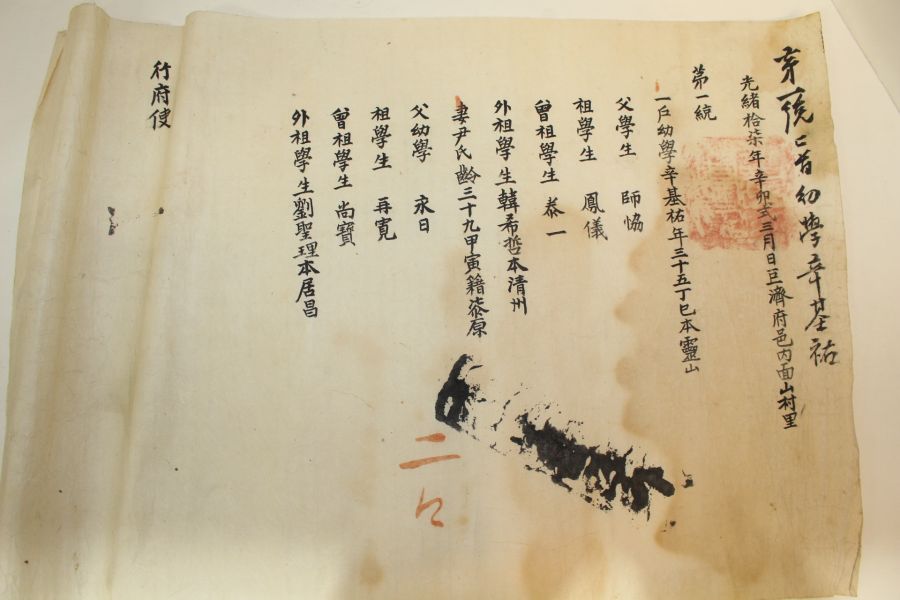 首幼學辛基祐
光緒拾柒年辛卯式三月日巨濟府邑內面山村里
第一統
一戶幼學辛基祐年三十五丁巳本靈山
父學生 師恊
祖學生 鳳儀
曾祖學生 泰一
外祖學生韓希哲本清州
妻尹氏齡三十九甲寅籍漆原
父幼學 永日
祖學生 再寬
曾祖學生 尚寶
外祖學生劉聖理本居昌
二口
行府使